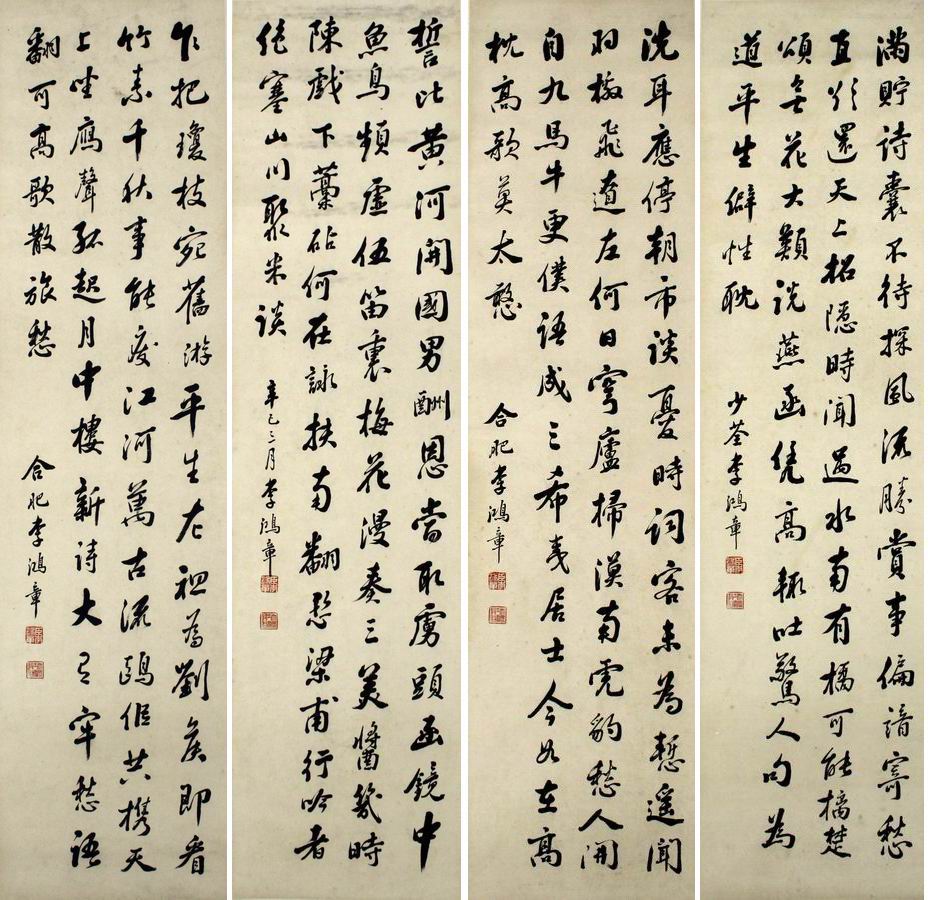 满貯詩囊不待探風流勝賞事偏諳寄愁
直欲還天上招隱時聞過水南有橘可能摘楚
頌無花大類説燕函凭高輒吐驚人句為
道平生僻性耽
少荃李鴻章
洗耳應停朝市談憂時詞客未為慙遥聞
羽檄飛道左何日穹廬掃漠南虎豹愁人開
自九馬牛更僕語成三希夷居士今如在高
枕高歌莫太憨
合肥李鴻章
誓比黄河開國男酬恩當取虜頭函鏡中
魚鳥頻虚伍笛裏梅花漫奏三美醬幾時
陳戲下藁砧何在詠扶南翻愁梁甫行吟者
侘塞山川聚米談
辛巳三月李鴻章
乍把瓊枝宛舊游平生左祖為劉侯即看
竹素千秋事能廢江河萬古流鷗侶共携天
上坐雁聲孤起月中樓新詩大有牢愁語
翻可高歌散旅愁
合肥李鴻章